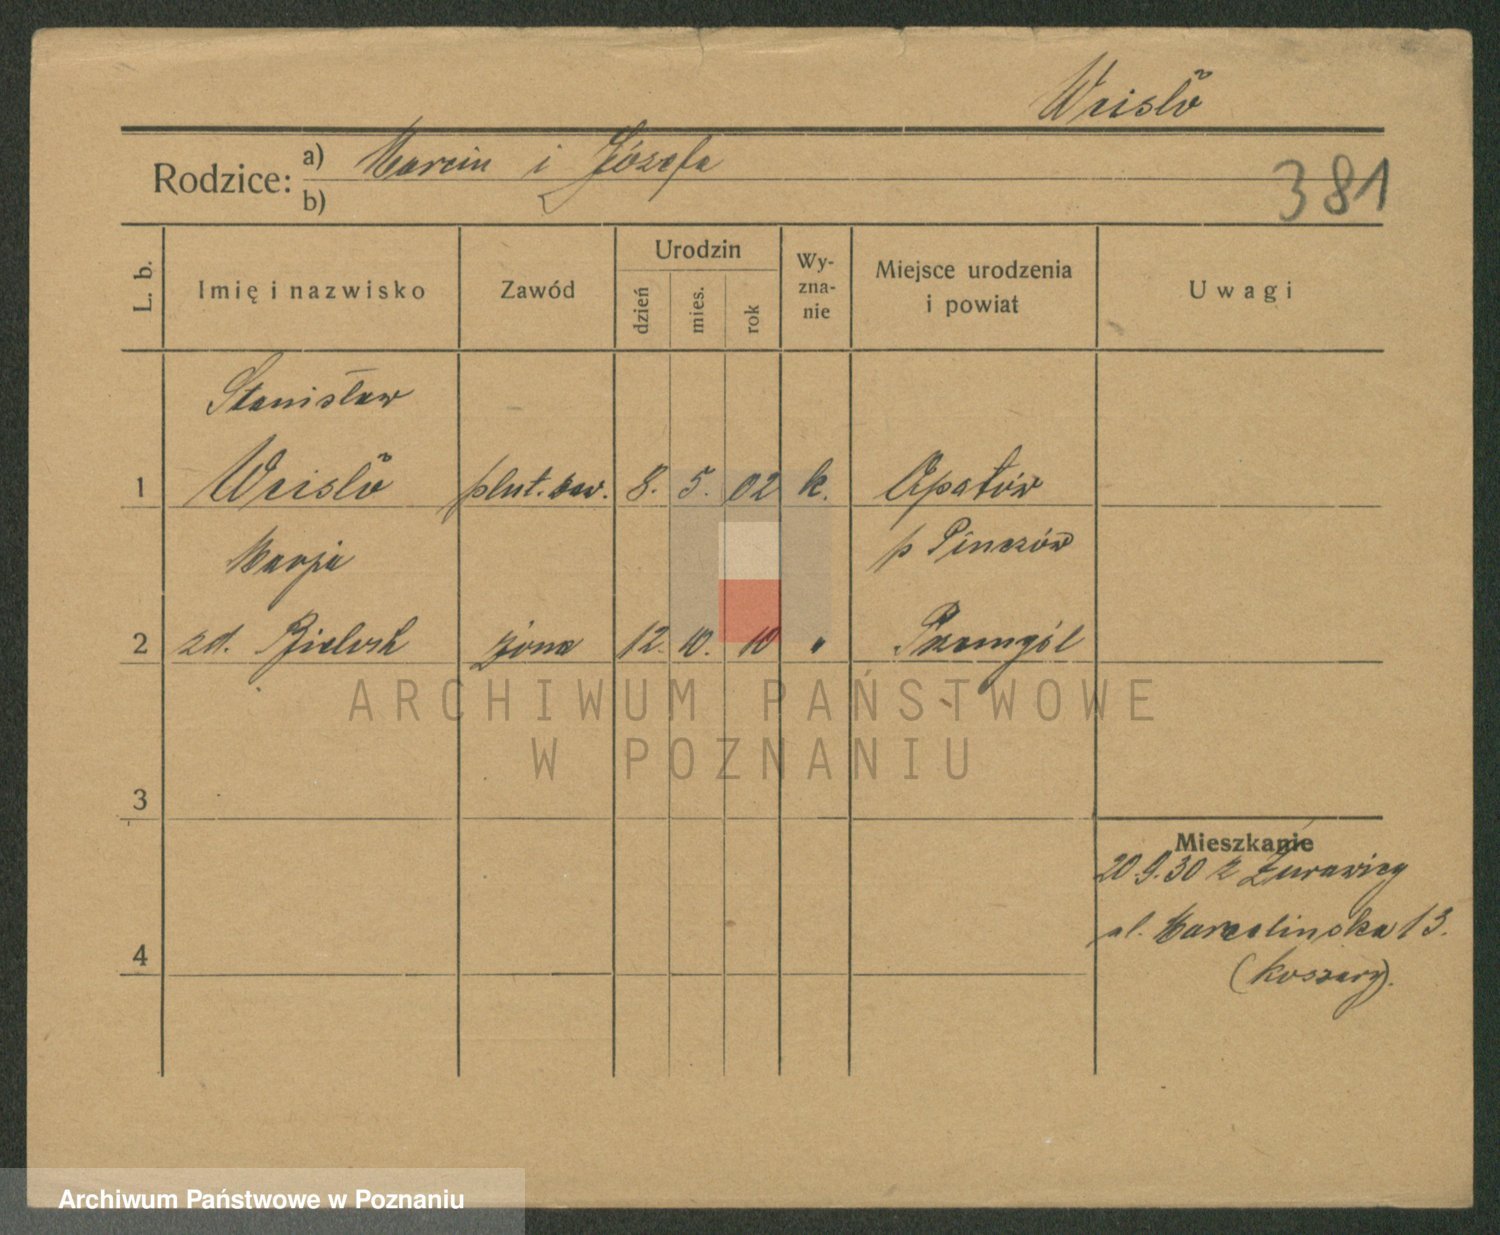 Wcisło
Rodzice: a) Marcin i Józefa
b)
381
L. b.
Imię i nazwisko
Zawód
Urodzin
dzień
mies.
rok
Wy-
zna-
nie
Miejsce urodzenia
i powiat
Uwagi
Stanisław
1 Wcisło plut. zaw. 8. 5. 02 k. Apatów
Marja p Pińczów
2 zd. Bielosh żona 12. 10. 10 " Przemyśl
ARCHIWUM PAŃSTWOWE
W POZNANIU
3
Mieszkanie
20.9.30 z Żurawicy
ul. Marcelińska 13.
4
(koszary).
Archiwum Państwowe w Poznaniu